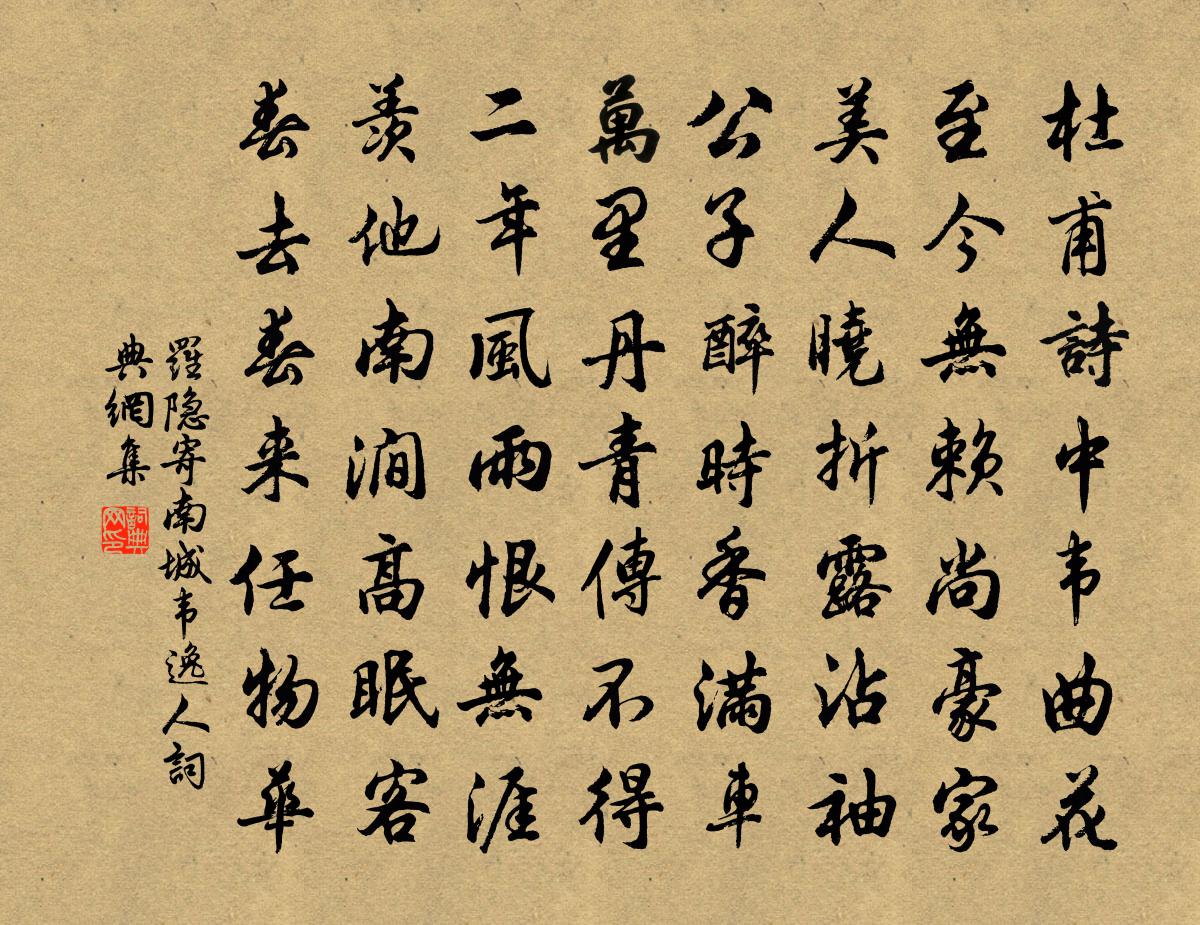 杜甫詩中韦曲花
至今無賴尚豪家
美人曉折露沾袖
公子醉時香滿車
萬里丹青傳不得
二年風雨恨無涯
羨他南澗高眠客
春去春来任物華
羅隐寄南城韦逸人詞
典網集
詞典
网印